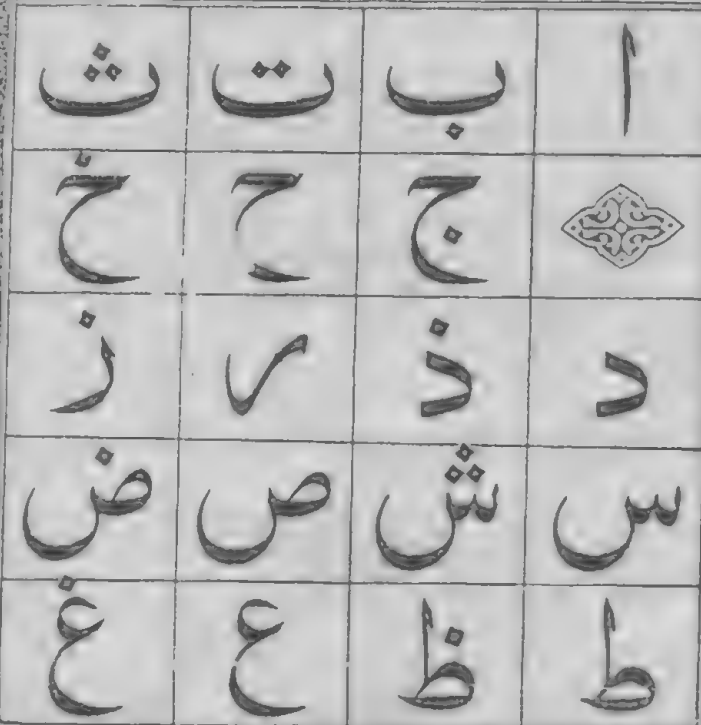 ا ب ت ث
ج ح خ
د ذ ر ز
س ش ص ض
ط ظ ع غ